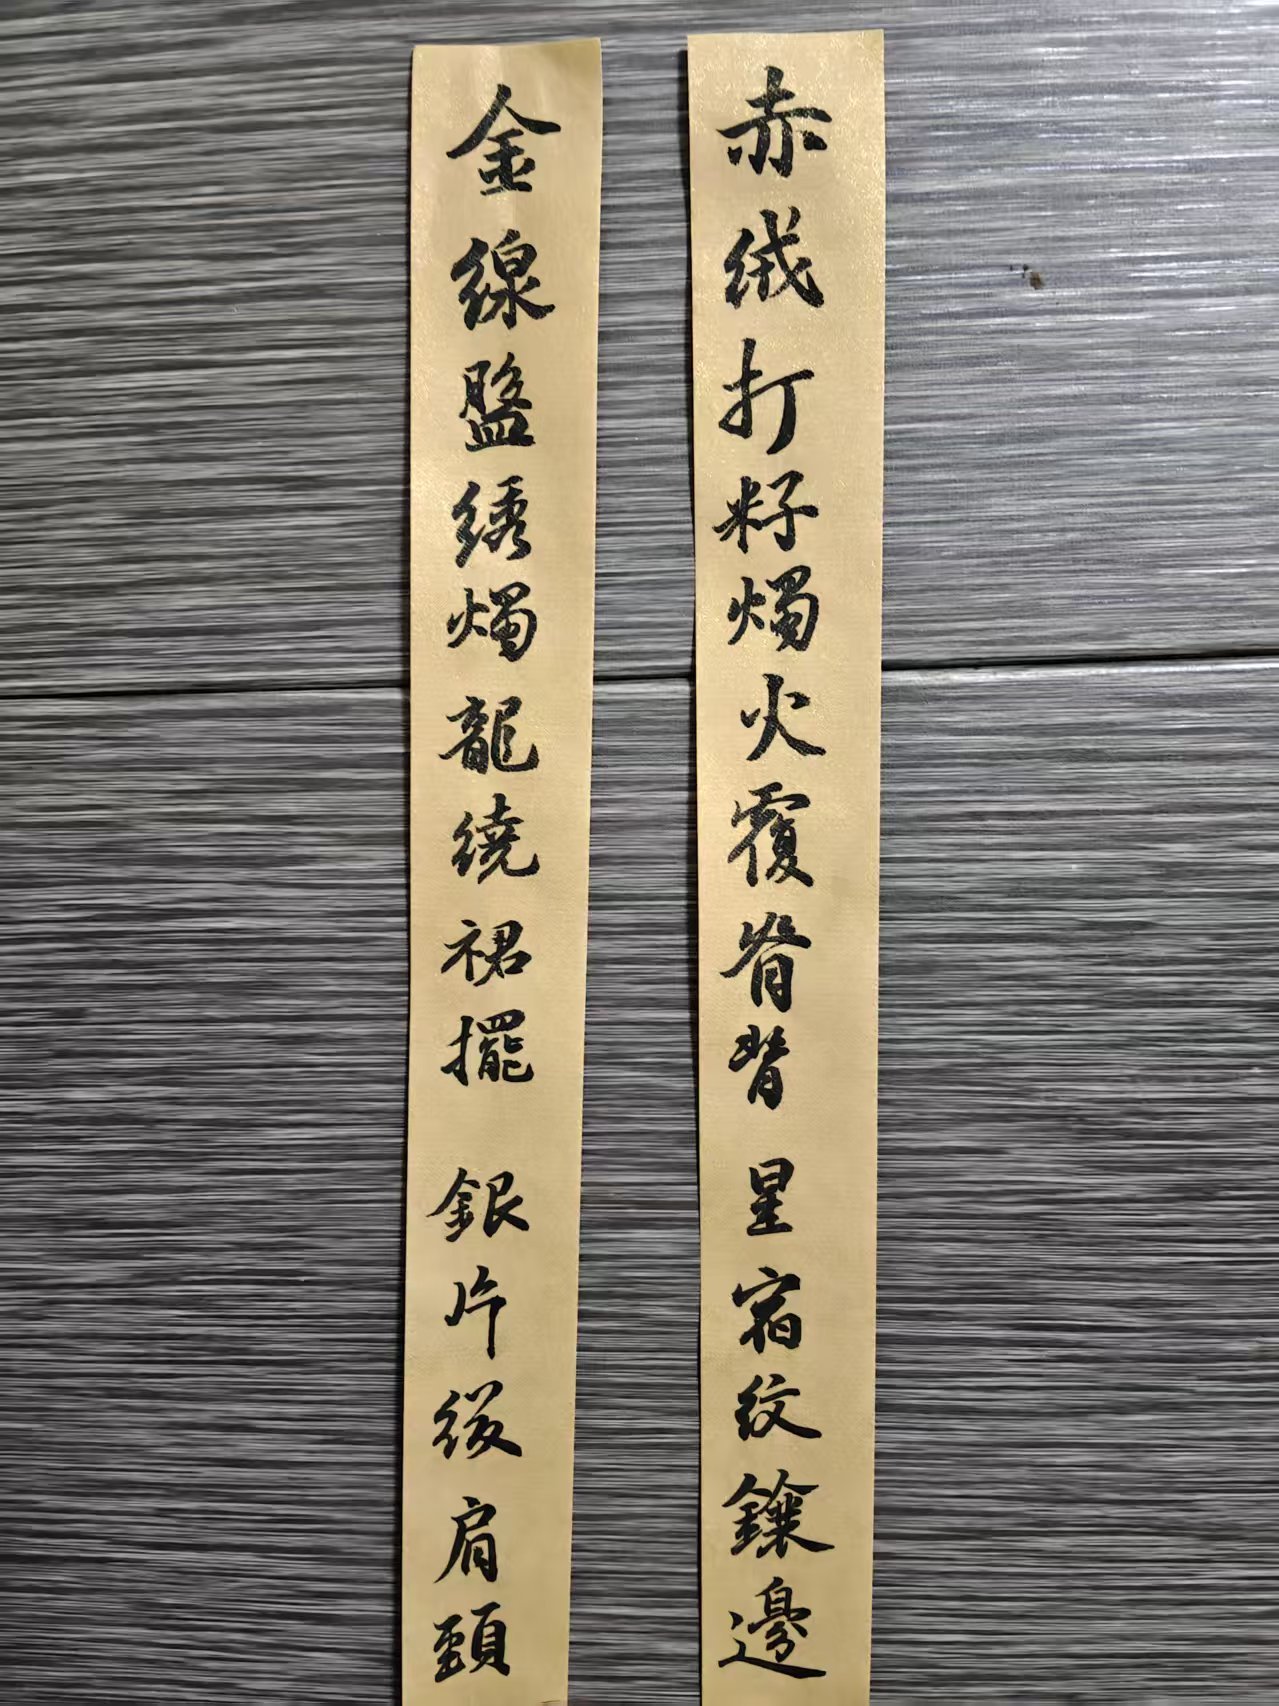 赤绒打籽燭火覆脊背 星宿紋鑲邊
金線盤绣燭龍繞裙擺 銀片缀肩頸